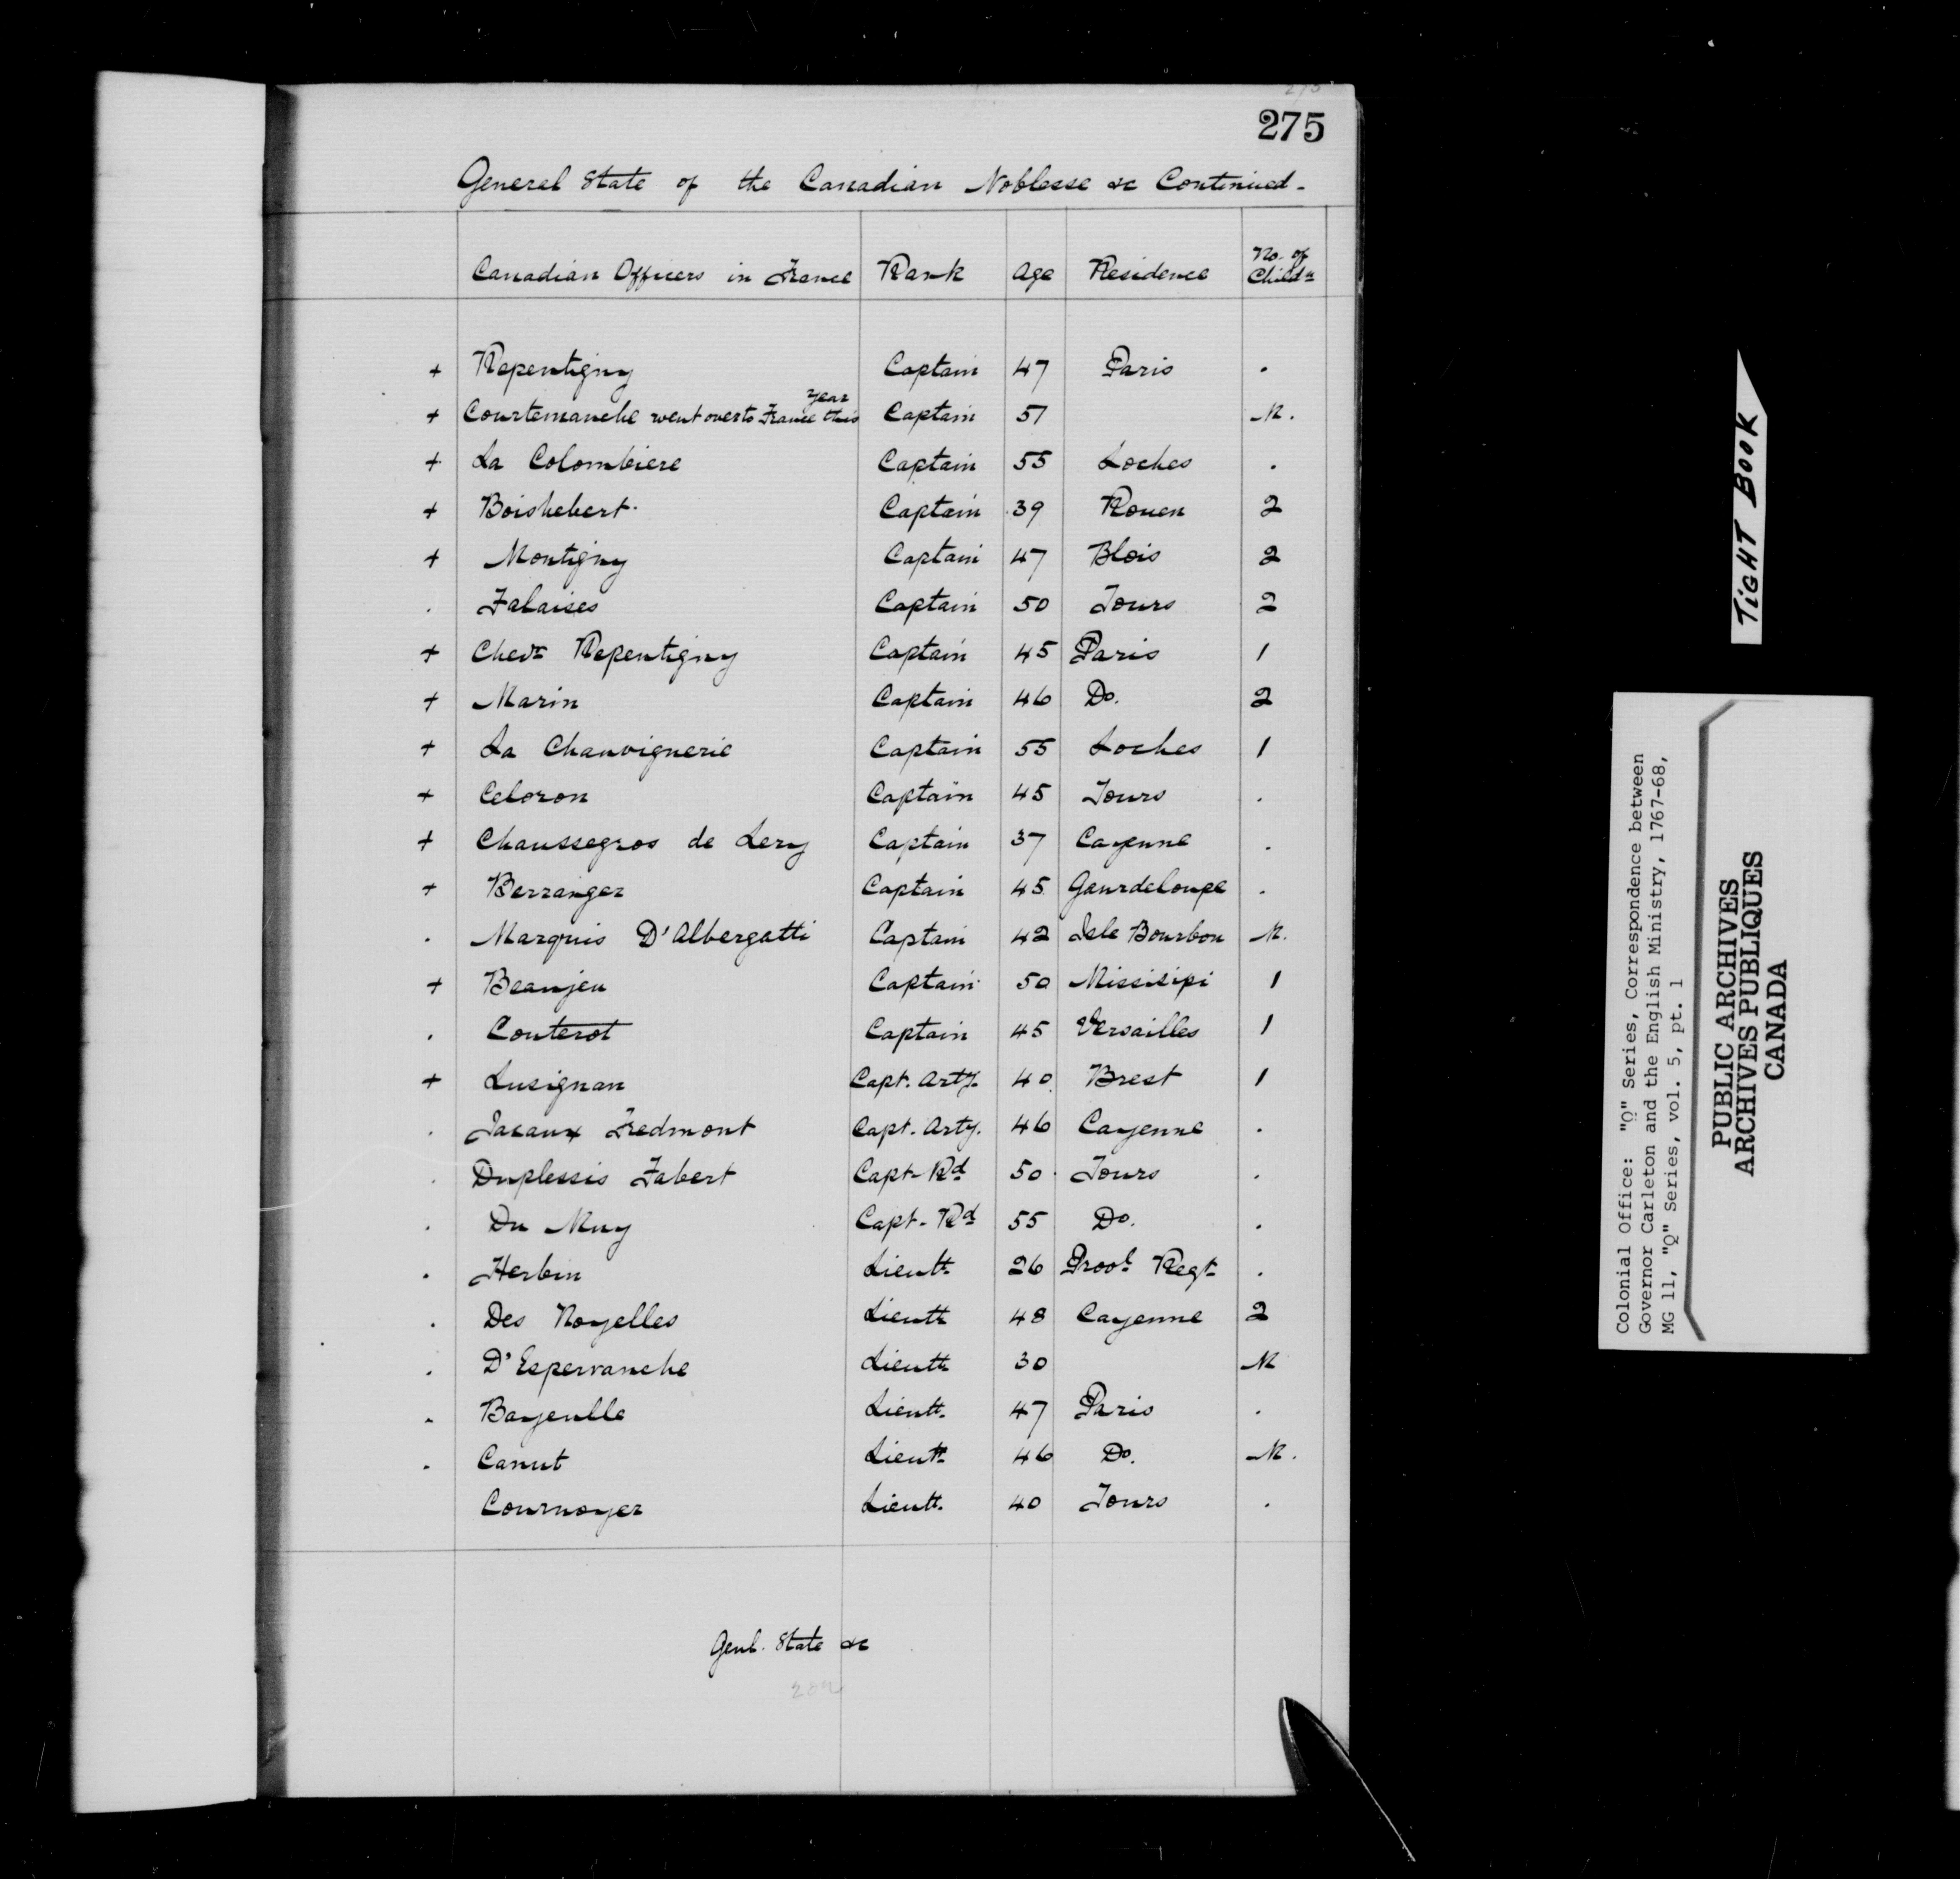 275
General State of the Canadian Noblesse &c Continued -
Canadian Officers in France | Rank | Age | Residence | No. of Childn
+ Repentigny | Captain | 47 | Paris | .
+ Courtemanche went over to France this year | Captain | 57 | | M.
+ La Colombiere | Captain | 55 | Loches | .
+ Boishebert. | Captain | 39 | Rouen | 2
+ Montigny | Captain | 47 | Blois | 2
. Falaises | Captain | 50 | Tours | 2
+ Chevr Repentigny | Captain | 45 | Paris | 1
+ Marin | Captain | 46 | Do. | 2
+ La Chauvignerie | Captain | 55 | Loches | 1
+ Celoron | Captain | 45 | Tours | .
+ Chaussegros de Lery | Captain | 37 | Cayenne | .
+ Berranger | Captain | 45 | Gaurdeloupe | .
. Marquis D'Albergatti | Captain | 42 | Isle Bourbon | M.
+ Beaujeu | Captain | 50 | Missisipi | 1
. Couterot | Captain | 45 | Versailles | 1
+ Lusignan | Capt. Arty. | 40 | Brest | 1
. Jacaux Fredmont | Capt. Arty. | 46 | Cayenne | .
. Duplessis Fabert | Capt - Rd | 50 | Tours | .
. Du Muy | Capt - Rd | 55 | Do. | .
. Herbin | Lieutt | 26 | Provl Regt | .
. Des Noyelles | Lieutt | 48 | Cayenne | 2
. D'Espervanche | Lieutt | 30 | | M
. Bayeulle | Lieutt. | 47 | Paris | .
. Canut | Lieutt | 46 | Do. | M.
Cournoyer | Lieutt. | 40 | Tours | .
Genl. State &c
TIGHT BOOK
Colonial Office: "Q" Series, Correspondence between
Governor Carleton and the English Ministry, 1767-68,
MG 11, "Q" Series, vol. 5, pt. 1
PUBLIC ARCHIVES
ARCHIVES PUBLIQUES
CANADA